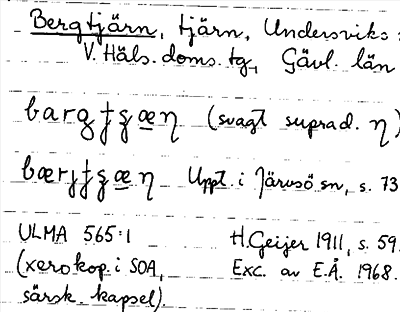 Bergtjärn, tjärn, Undersviks s
V. Häls. doms. tg, Gävl. län
(svagt suprad. η)
Uppt. i Järvsö sn, s. 73
ULMA 565:1 H. Geijer 1911, s. 59.
(xerokop. i SOA, Exc. av E.Å. 1968.
särsk. kapsel).